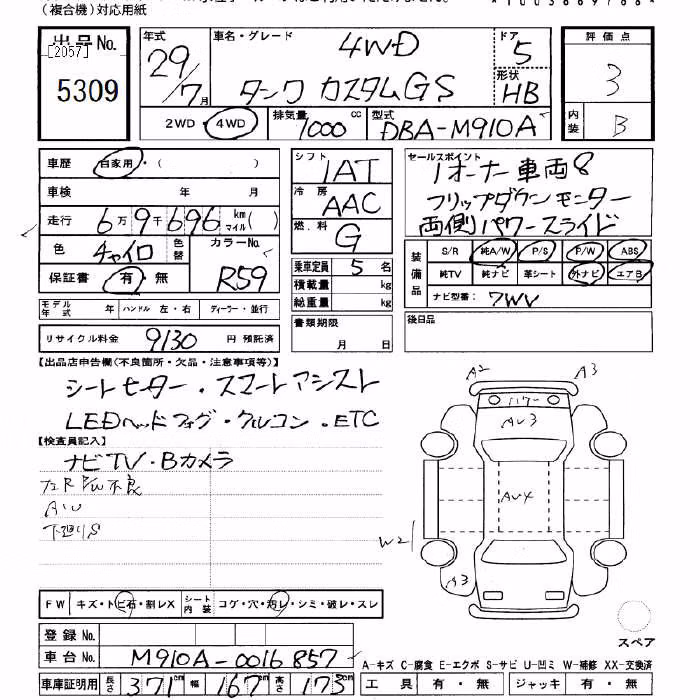 (複合機)対応用紙
出品No.
[2057]
5309
年式
29/7月
車名・グレード
4WD
タンク カスタムGS
ドア
5
形状
HB
2WD・4WD
排気量
1000cc
型式
DBA-M910A
評価点
3
内装
B
車歴 自家用・( )
車検 年 月
走行 6万9千696 km マイル( )
色 チャイロ 色替
カラーNo.
R59
保証書 有・無
モデル年式 年 ハンドル 左・右 ディーラー・並行
リサイクル料金 9130 円 預託済
シフト
IAT
冷房
AAC
燃料
G
乗車定員 5 名
積載量 kg
総重量 kg
書類期限
月 日
セールスポイント
1オーナー車両8
フリップダウンモニター
両側パワースライド
装備品
S/R 純A/W P/S P/W ABS
純TV 純ナビ 革シート 外ナビ エアB
ナビ型番: 7WV
後日品
【出品店申告欄(不良箇所・欠品・注意事項等)】
シートヒーター・スマートアシスト
LEDヘッドフォグ・クルコン・ETC
【検査員記入】
ナビTV・Bカメラ
P/W不良
AW
下廻りS
A2
A3
パワー
AV3
AV4
W2
A3
スペア
FW キズ・トビ石・割レX
シート内装 コゲ・穴・汚レ・シミ・破レ・スレ
登録No.
車台No. M910A-0016857
車庫証明用 長さ 371cm 幅 167cm 高さ 173cm
A-キズ C-腐食 E-エクボ S-サビ U-凹ミ W-補修 XX-交換済
工具 有・無 ジャッキ 有・無